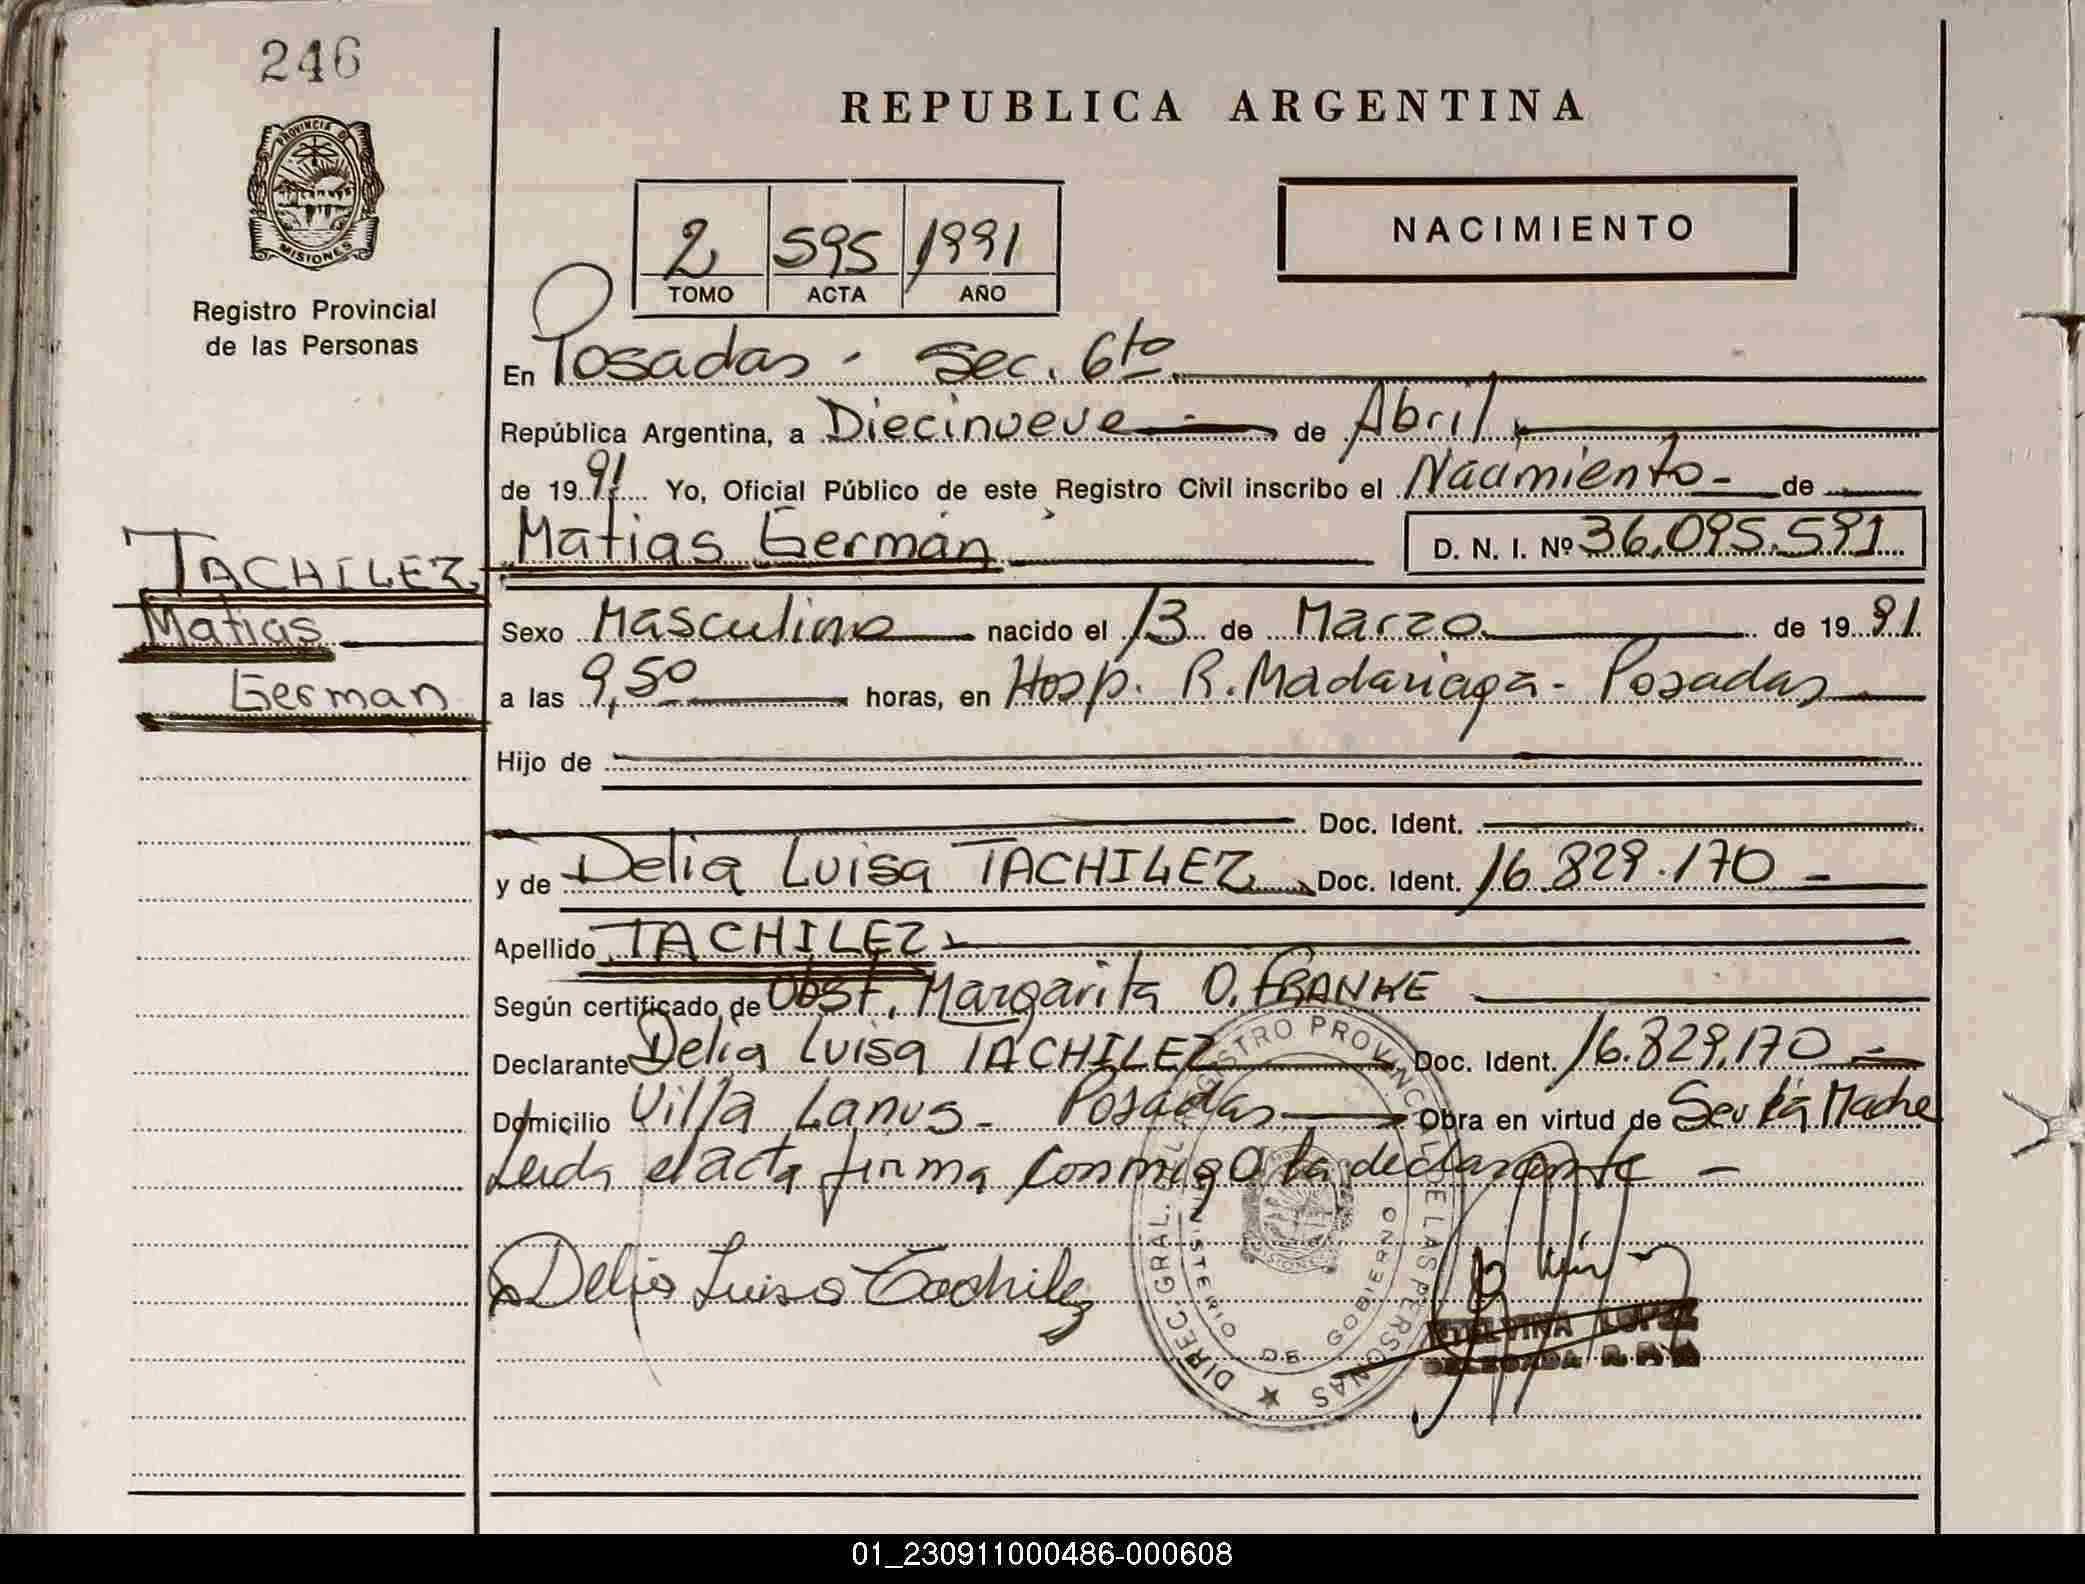 246
REPUBLICA ARGENTINA
PROVINCIA DE
MISIONES
NACIMIENTO
2 595 1991
TOMO ACTA AÑO
Registro Provincial
de las Personas
En Posadas - Sec. 6to
República Argentina, a Diecinueve de Abril
de 1991 Yo, Oficial Público de este Registro Civil inscribo el Nacimiento - de
TACHILEZ Matias Germán D. N. I. Nº 36.095.591
Matias
Sexo Masculino nacido el 13 de Marzo de 1991
German
a las 9,50 horas, en Hosp. R. Madariaga - Posadas
Hijo de
Doc. Ident.
y de Delia Luisa TACHILEZ Doc. Ident. 16.829.170 -
Apellido TACHILEZ
Según certificado de Obst. Margarita O. FRANKE
Declarante Delia Luisa TACHILEZ Doc. Ident. 16.829.170 -
Domicilio Villa Lanus - Posadas Obra en virtud de Ser la Madre
Leida el acta firma conmigo la declarante -
Delia Luisa Tachilez
DIREC. GRAL. DEL REGISTRO PROVINCIAL DE LAS PERSONAS
MINISTERIO DE GOBIERNO
MISIONES
LOPEZ
01_230911000486-000608